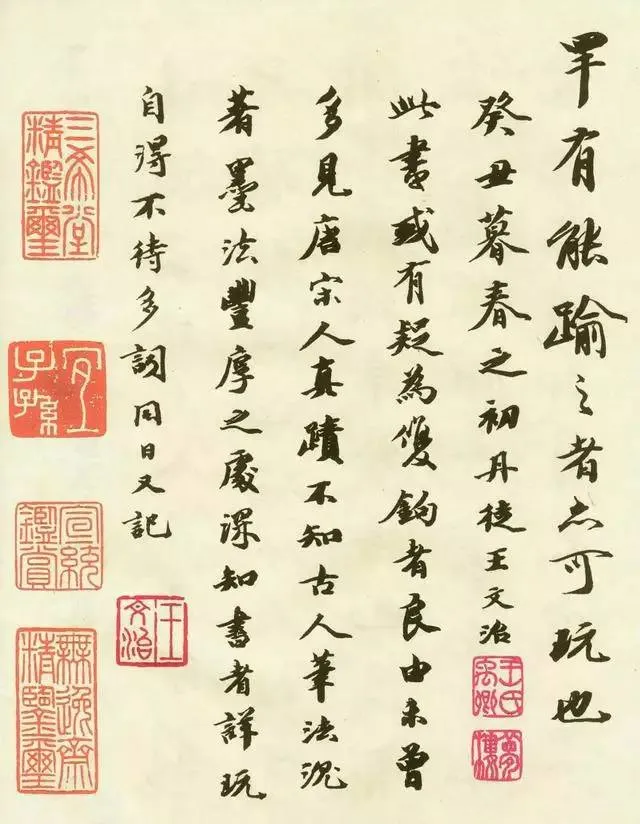 罕有能踰之者亦可玩也
癸丑暮春之初丹徒王文治
王氏禹卿
夢樓
此書或有疑為雙鉤者良由未曾
多見唐宋人真蹟不知古人筆法沈
著墨法豐厚之處深知書者詳玩
自得不待多詞同日又記
王文治
三希堂精鑑璽
宜子孫
宣統鑑賞
無逸齋精鑒璽